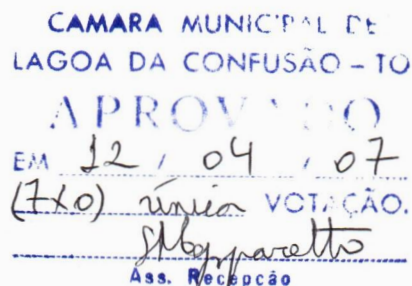 CAMARA MUNICIPAL DE
LAGOA DA CONFUSÃO – TO
APROVADO
EM 12 / 04 / 07
(7x0) única VOTAÇÃO.
Ass. Recepcão